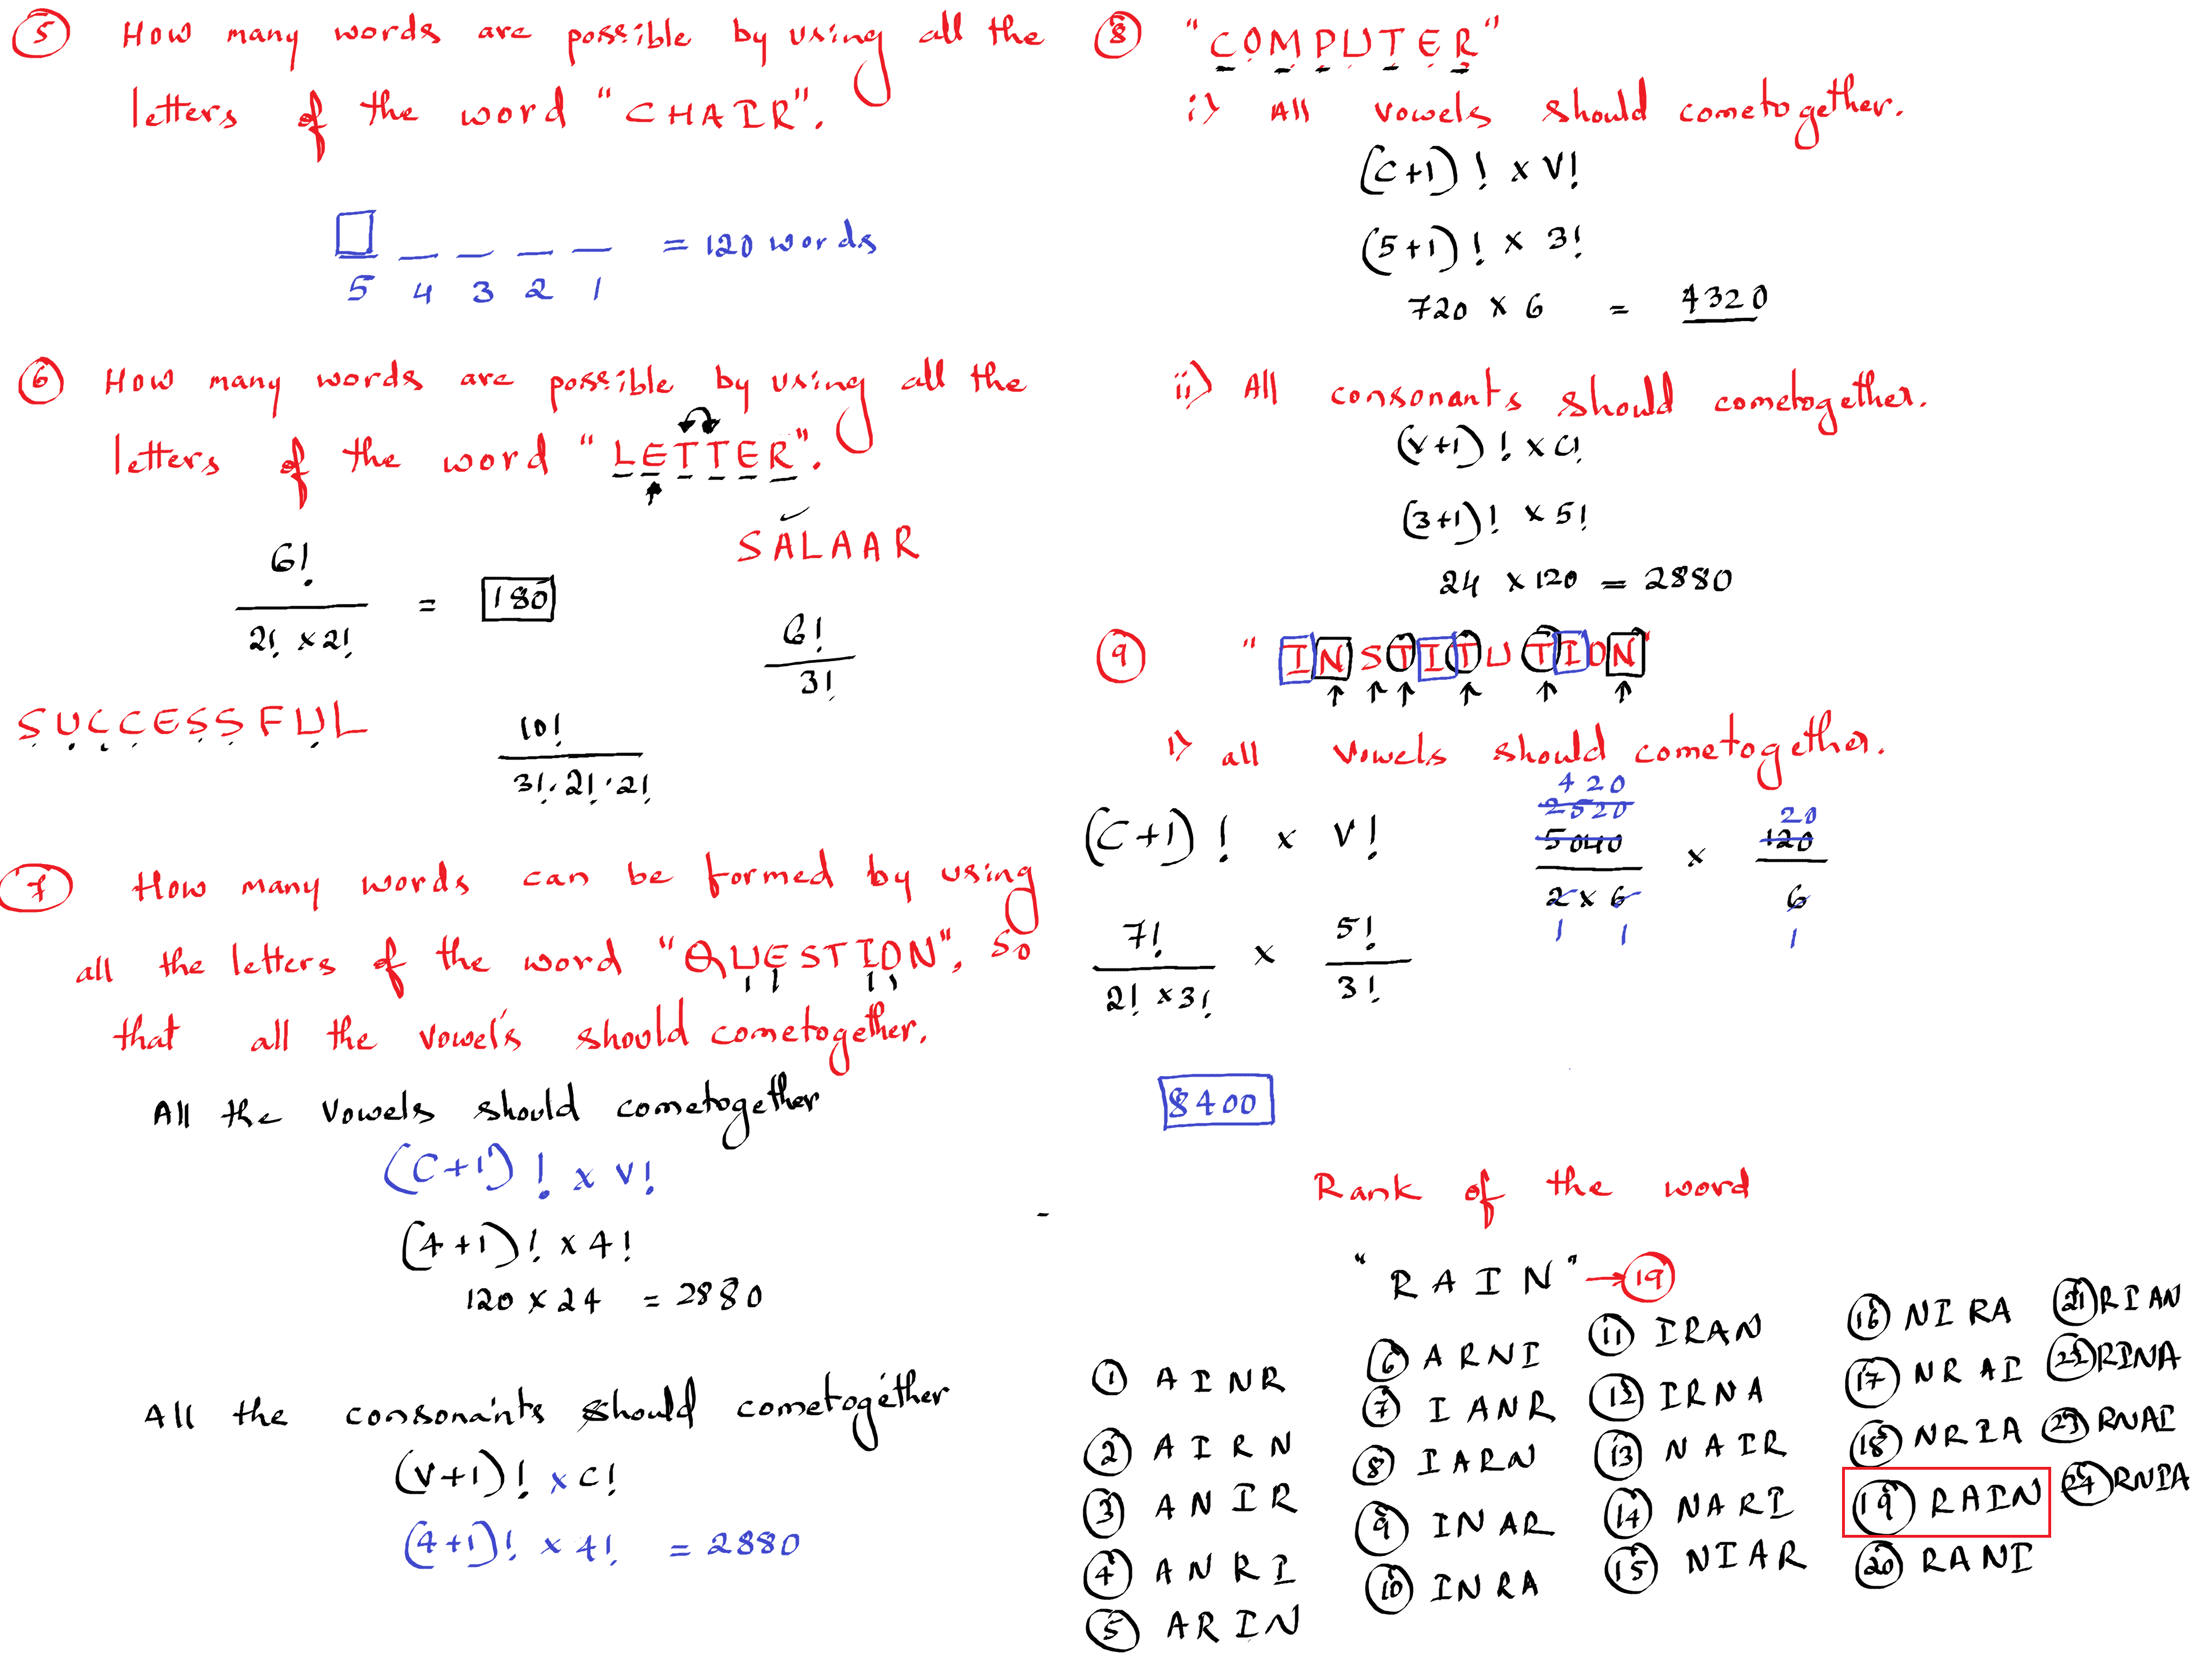 5 How many words are possible by using all the
letters of the word "CHAIR".
5 4 3 2 1 = 120 words
6 How many words are possible by using all the
letters of the word "LETTER".
6!
2! x 2!
= 180
SALAAR
6!
3!
SUCCESSFUL
10!
3!.2!.2!
7 How many words can be formed by using
all the letters of the word "QUESTION", so
that all the vowel's should cometogether.
All the vowels should cometogether
(C+1)! x V!
(4+1)! x 4!
120 x 24 = 2880
All the consonants should cometogether
(V+1)! x C!
(4+1)! x 4! = 2880
8 "COMPUTER"
i) All vowels should cometogether.
(C+1)! x V!
(5+1)! x 3!
720 x 6 = 4320
ii) All consonants should cometogether.
(V+1)! x C!
(3+1)! x 5!
24 x 120 = 2880
9 "INSTITUTION"
i) all vowels should cometogether.
(C+1)! x V!
7!
2! x 3!
x
5!
3!
420
2520
5040
2 x 6
1 1
x
20
120
6
1
8400
Rank of the word
"RAIN" → 19
1 AINR
2 AIRN
3 ANIR
4 ANRI
5 ARIN
6 ARNI
7 IANR
8 IARN
9 INAR
10 INRA
11 IRAN
12 IRNA
13 NAIR
14 NARI
15 NIAR
16 NIRA
17 NRAI
18 NRIA
19 RAIN
20 RANI
21 RIAN
22 RINA
23 RNAI
24 RNIA